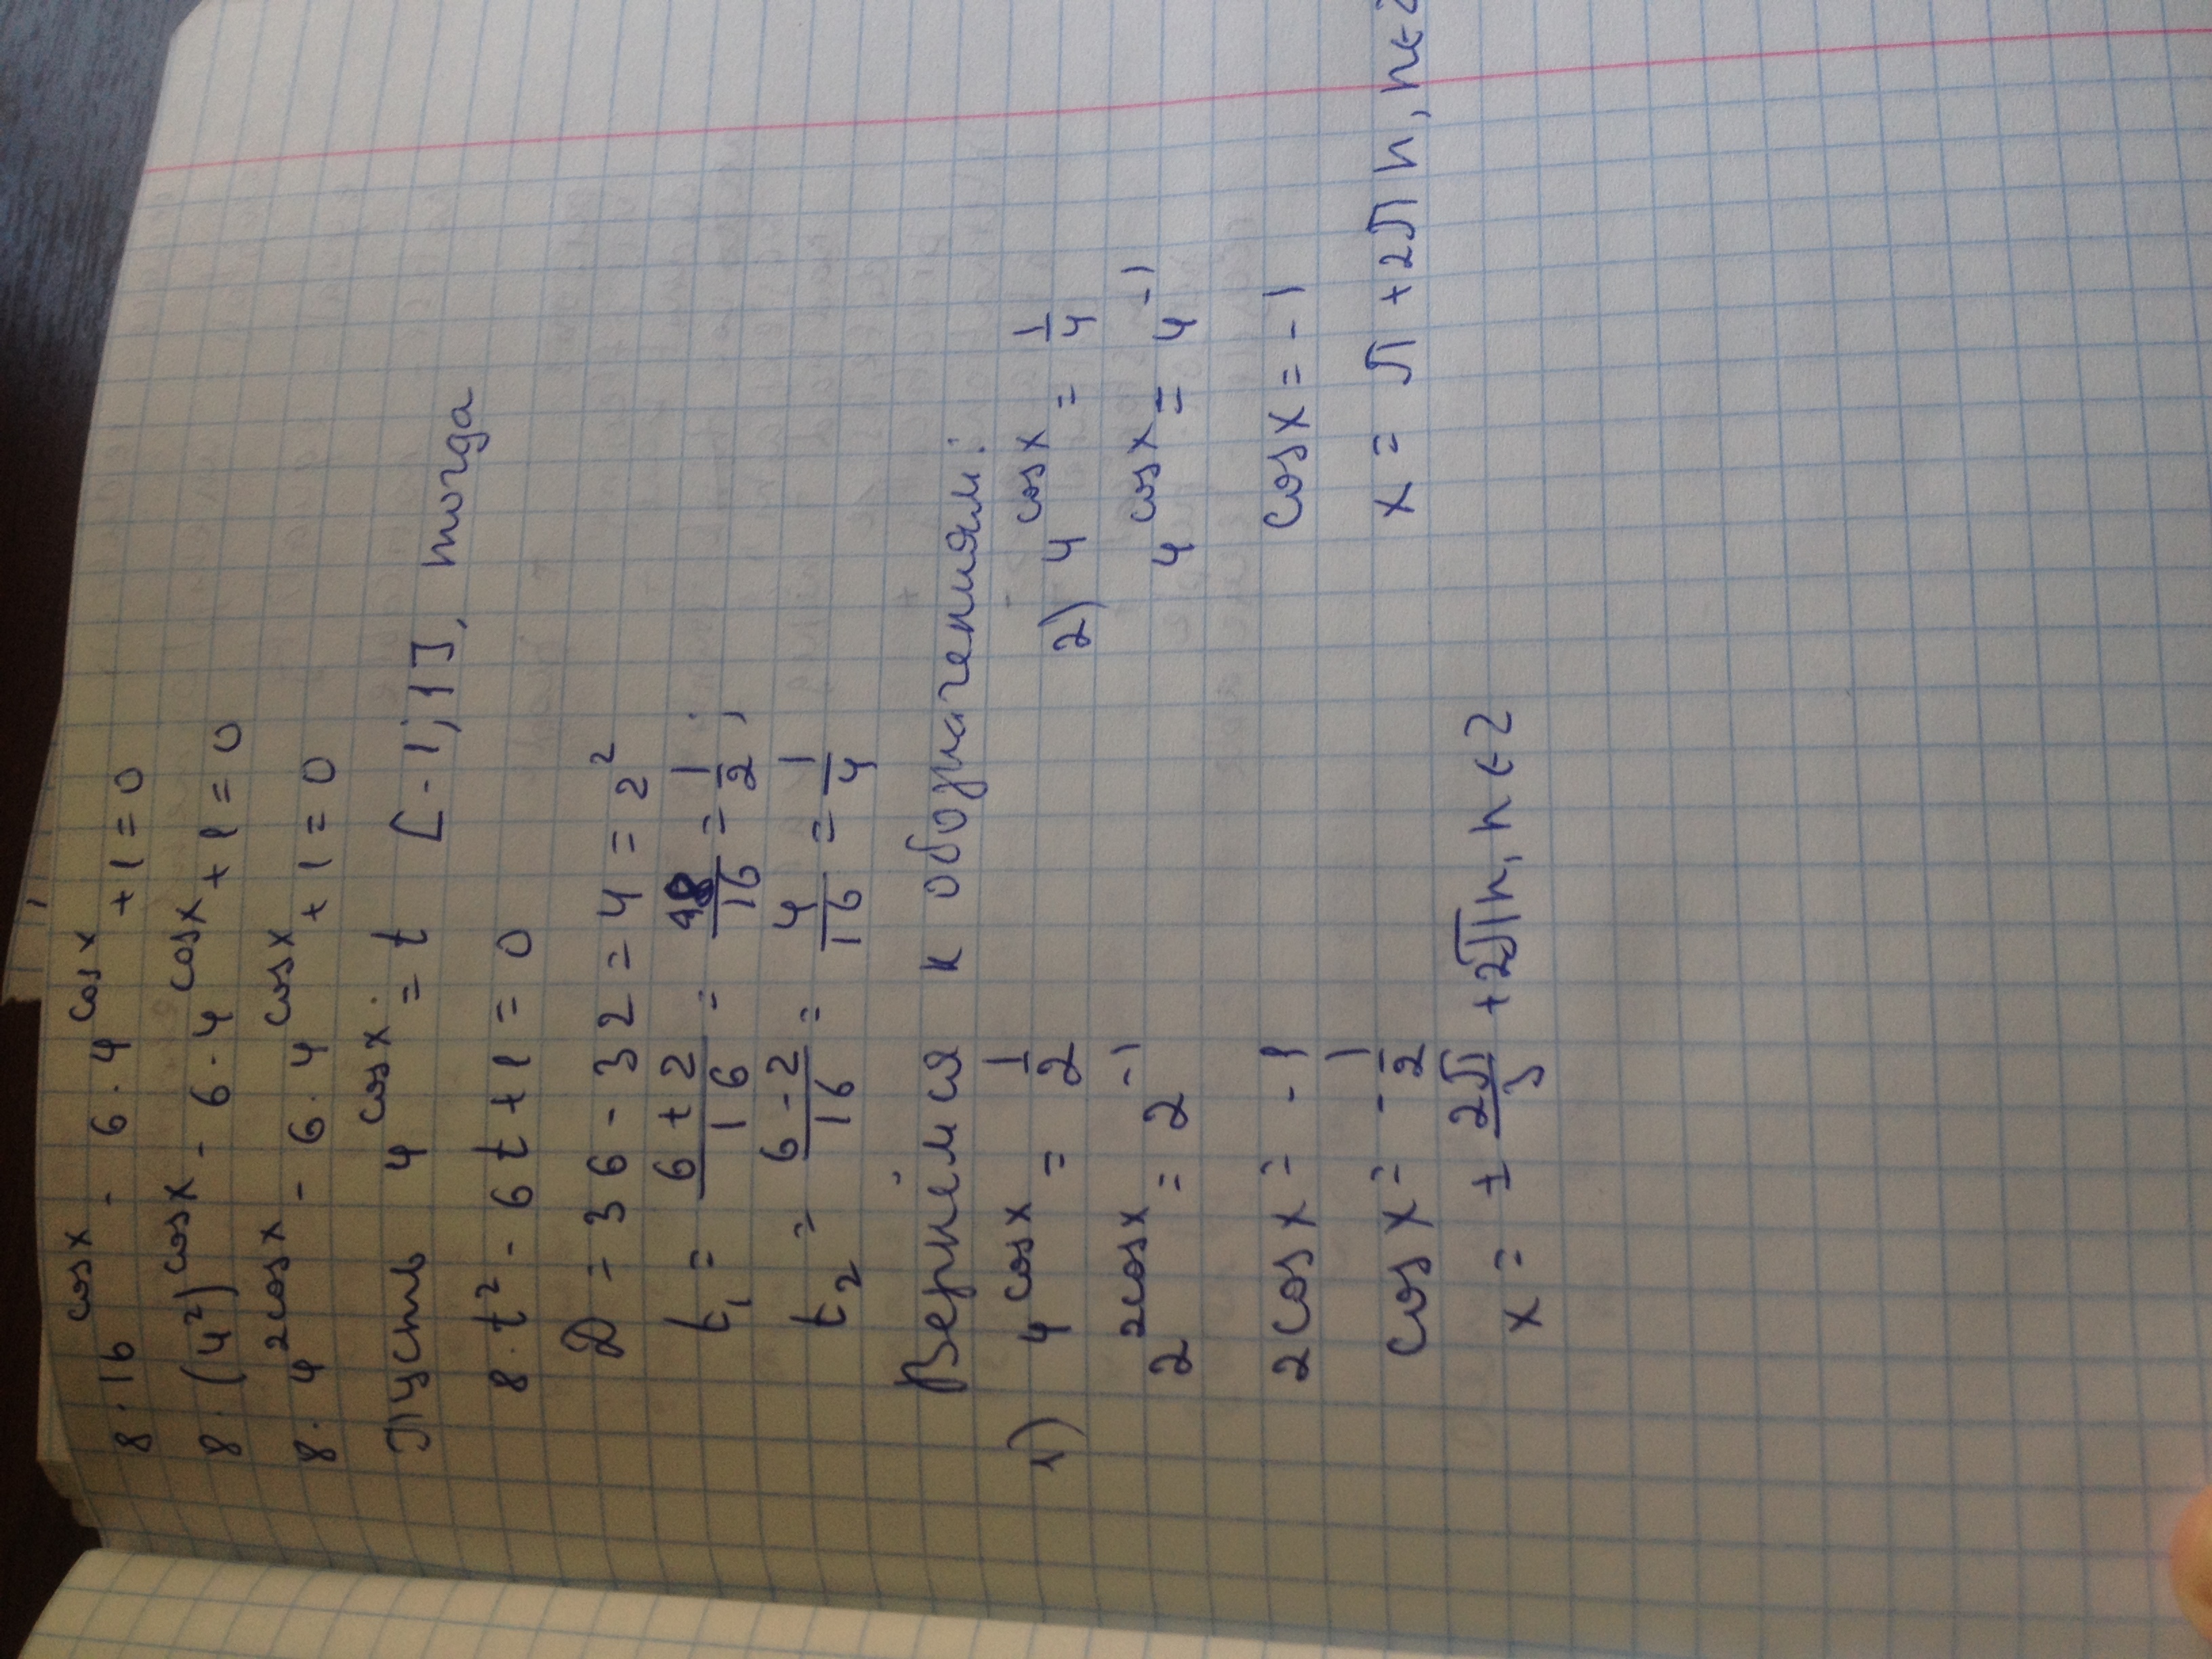 8·16^cosx - 6·4^cosx +1=0
8·(4²)^cosx - 6·4^cosx +1=0
8·4^2cosx - 6·4^cosx +1=0
Пусть 4^cosx = t [-1;1], тогда
8·t² - 6t+1=0
D = 36 - 32 = 4 = 2²
t₁ = (6+2)/16 = 8/16 = 1/2;
t₂ = (6-2)/16 = 4/16 = 1/4
Вернёмся к обозначениям:
1) 4^cosx = 1/2
2^2cosx = 2^-1
2cosx = -1
cosx = -1/2
x = ± 2π/3 +2πn, n∈Z
2) 4^cosx = 1/4
4^cosx = 4^-1
cosx = -1
x = π +2πn, n∈Z